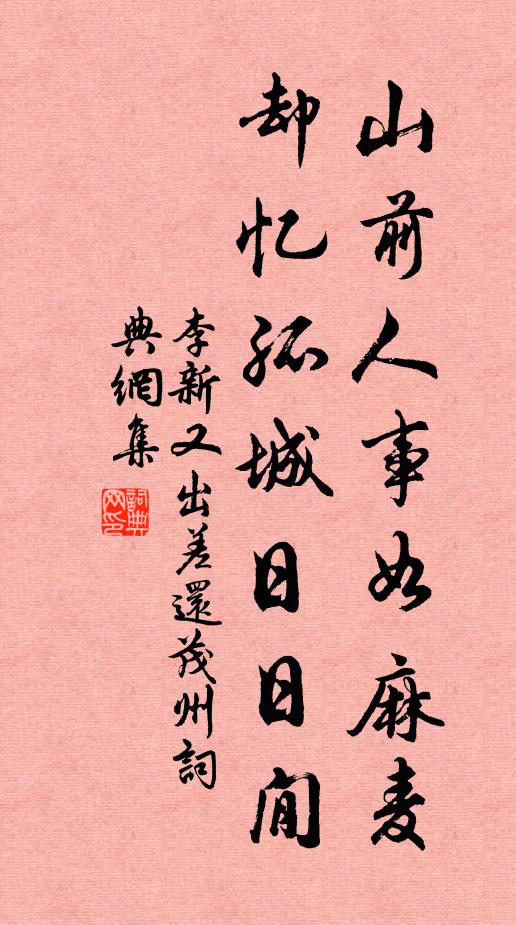 山前人事如麻麦
却忆孤城日日闲
李新又出差還茂州詞
典網集
詞典網印